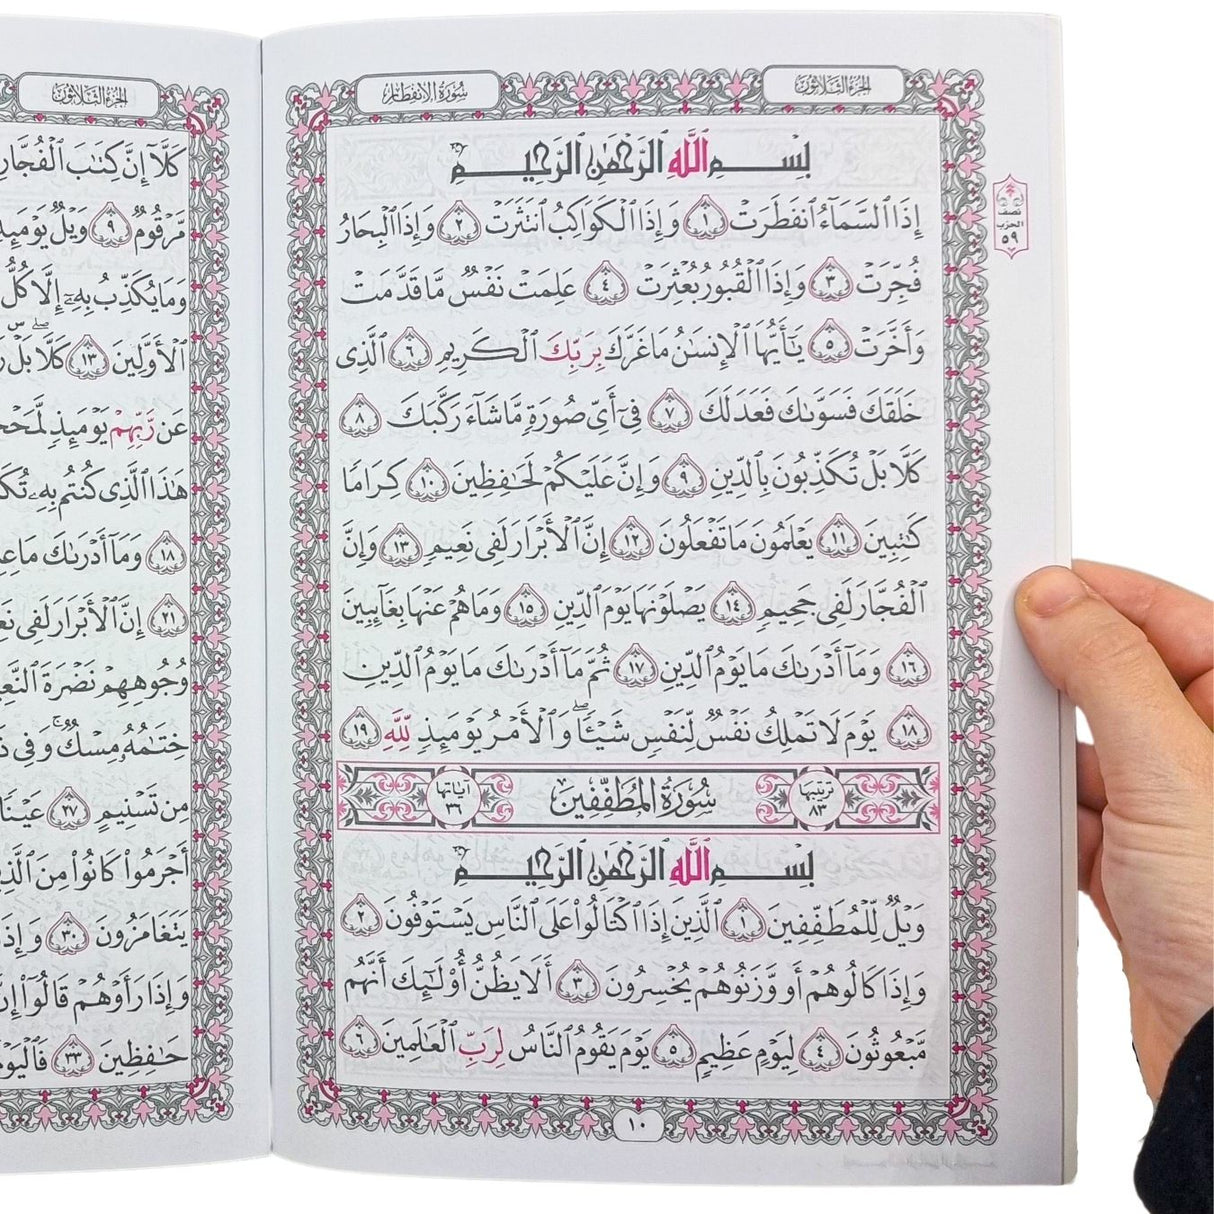 الجزء الثلاثون
سورة الانفطار
بِسْمِ اللَّهِ الرَّحْمَٰنِ الرَّحِيمِ
إِذَا السَّمَاءُ انفَطَرَتْ ١ وَإِذَا الْكَوَاكِبُ انتَثَرَتْ ٢ وَإِذَا الْبِحَارُ
فُجِّرَتْ ٣ وَإِذَا الْقُبُورُ بُعْثِرَتْ ٤ عَلِمَتْ نَفْسٌ مَّا قَدَّمَتْ
وَأَخَّرَتْ ٥ يَٰأَيُّهَا الْإِنسَٰنُ مَا غَرَّكَ بِرَبِّكَ الْكَرِيمِ ٦ الَّذِى
خَلَقَكَ فَسَوَّىٰكَ فَعَدَلَكَ ٧ فِى أَىِّ صُورَةٍ مَّا شَاءَ رَكَّبَكَ ٨
كَلَّا بَلْ تُكَذِّبُونَ بِالدِّينِ ٩ وَإِنَّ عَلَيْكُمْ لَحَٰفِظِينَ ١٠ كِرَامًا
كَٰتِبِينَ ١١ يَعْلَمُونَ مَا تَفْعَلُونَ ١٢ إِنَّ الْأَبْرَارَ لَفِى نَعِيمٍ ١٣ وَإِنَّ
الْفُجَّارَ لَفِى جَحِيمٍ ١٤ يَصْلَوْنَهَا يَوْمَ الدِّينِ ١٥ وَمَا هُمْ عَنْهَا بِغَائِبِينَ
١٦ وَمَا أَدْرَىٰكَ مَا يَوْمُ الدِّينِ ١٧ ثُمَّ مَا أَدْرَىٰكَ مَا يَوْمُ الدِّينِ
١٨ يَوْمَ لَا تَمْلِكُ نَفْسٌ لِّنَفْسٍ شَيْـًٔا ۖ وَالْأَمْرُ يَوْمَئِذٍ لِّلَّهِ ١٩
ترتيبها ٨٣
سُورَةُ الْمُطَفِّفِينَ
آياتها ٣٦
بِسْمِ اللَّهِ الرَّحْمَٰنِ الرَّحِيمِ
وَيْلٌ لِّلْمُطَفِّفِينَ ١ الَّذِينَ إِذَا اكْتَالُوا عَلَى النَّاسِ يَسْتَوْفُونَ ٢
وَإِذَا كَالُوهُمْ أَو وَّزَنُوهُمْ يُخْسِرُونَ ٣ أَلَا يَظُنُّ أُولَٰئِكَ أَنَّهُم
مَّبْعُوثُونَ ٤ لِيَوْمٍ عَظِيمٍ ٥ يَوْمَ يَقُومُ النَّاسُ لِرَبِّ الْعَٰلَمِينَ ٦
١٠
نصف
الحزب
٥٩
الجزء الثلاثون
كَلَّا إِنَّ كِتَٰبَ الْفُجَّارِ
مَّرْقُومٌ ٩ وَيْلٌ يَوْمَئِذٍ
وَمَا يُكَذِّبُ بِهِ إِلَّا كُلُّ
الْأَوَّلِينَ ١٣ كَلَّا ۖ بَلْ
عَن رَّبِّهِمْ يَوْمَئِذٍ
هَٰذَا الَّذِى كُنتُم بِهِ
١٨ وَمَا أَدْرَىٰكَ مَا
٢١ إِنَّ الْأَبْرَارَ لَفِى
وُجُوهِهِمْ نَضْرَةَ
خِتَٰمُهُ مِسْكٌ ۚ وَفِى
مِن تَسْنِيمٍ ٢٧ عَيْنًا
أَجْرَمُوا كَانُوا مِنَ
يَتَغَامَزُونَ ٣٠ وَإِذَا
وَإِذَا رَأَوْهُمْ قَالُوا إِنَّ
حَٰفِظِينَ ٣٣